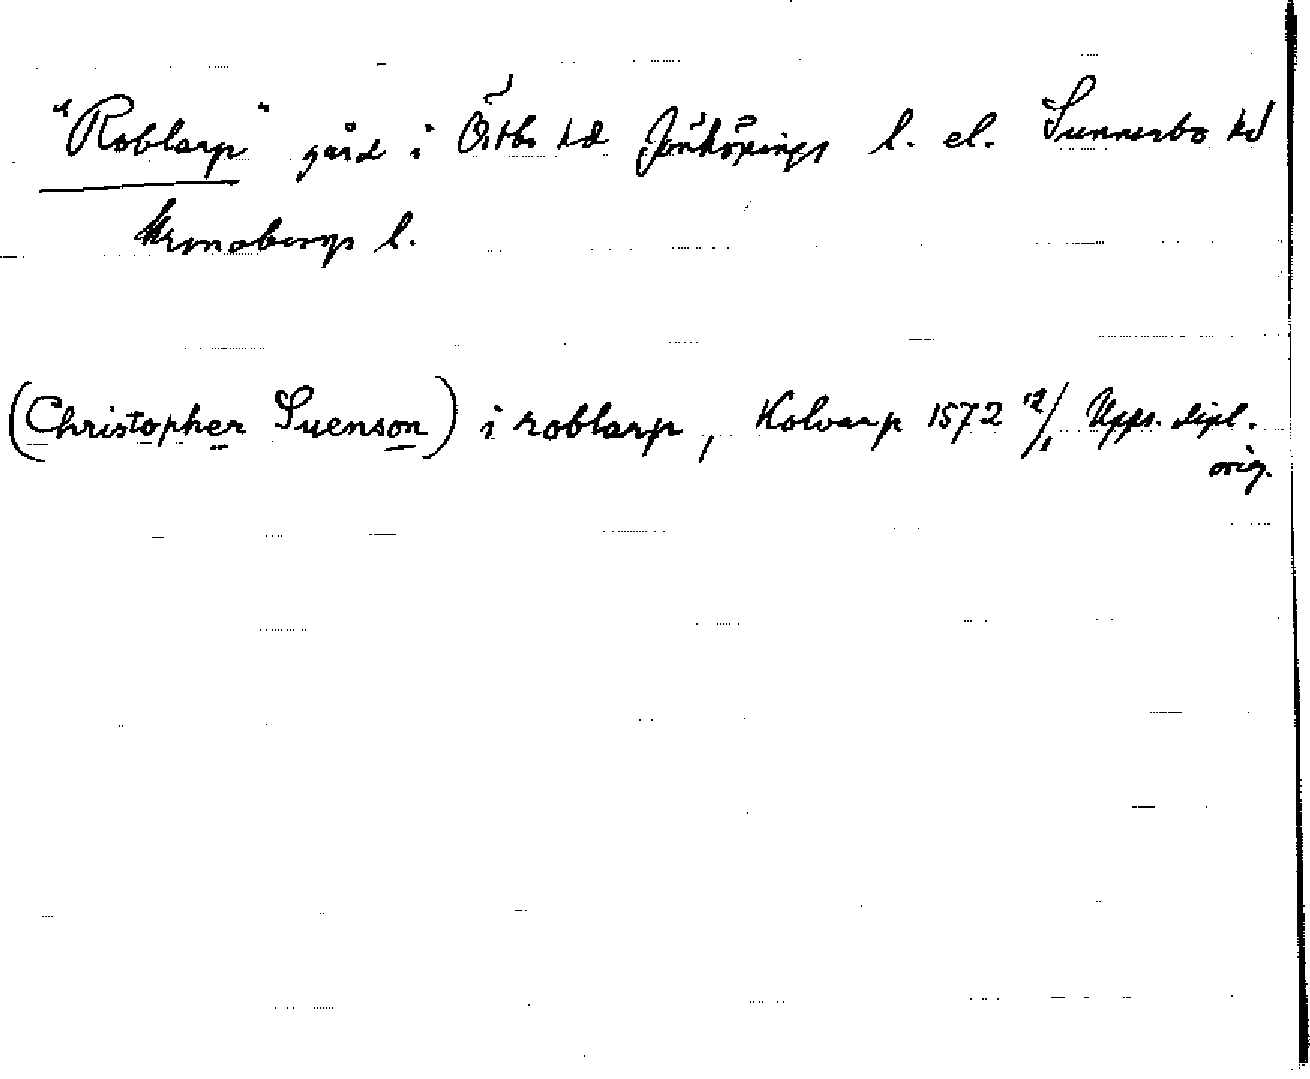 "Roblarp" gård i Östbo hd Jönköpings l. el. Sunnerbo hd
Kronobergs l.
(Christopher Suenson) i roblarp, Kolvarp 1572 12/1 Upps. dipl.
orig.